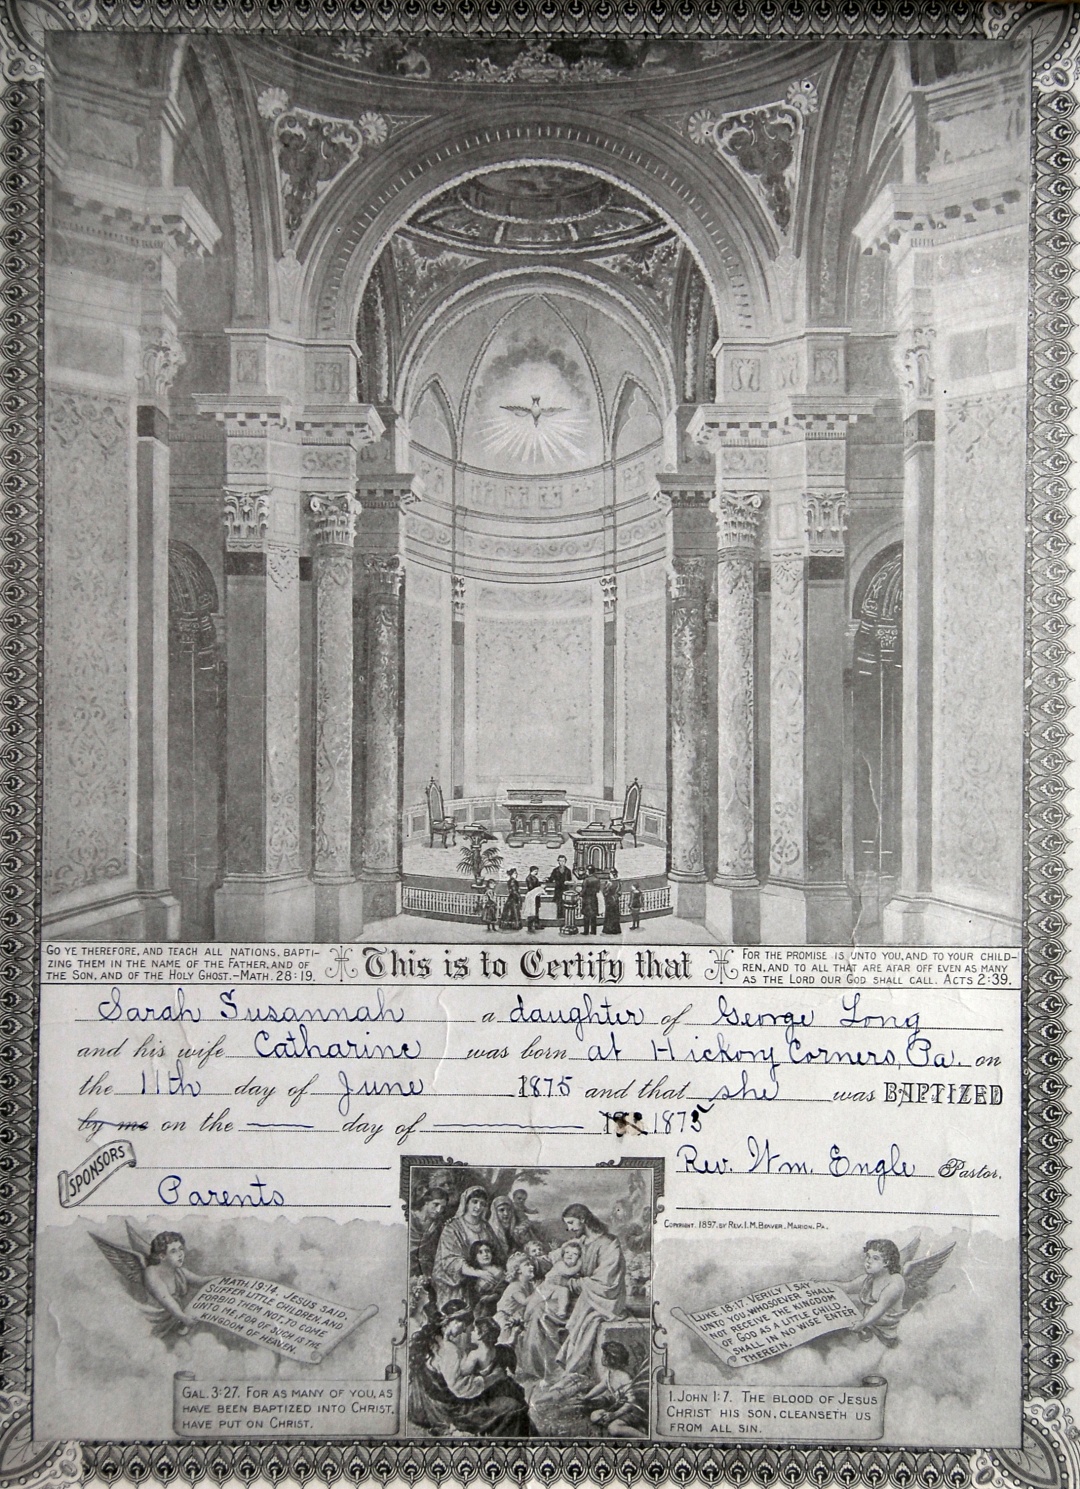 GO YE THEREFORE, AND TEACH ALL NATIONS, BAPTI-
ZING THEM IN THE NAME OF THE FATHER, AND OF
THE SON, AND OF THE HOLY GHOST.-MATH. 28:19.
This is to Certify that
FOR THE PROMISE IS UNTO YOU, AND TO YOUR CHILD-
REN, AND TO ALL THAT ARE AFAR OFF EVEN AS MANY
AS THE LORD OUR GOD SHALL CALL. ACTS 2:39.
Sarah Susannah a daughter of George Long
and his wife Catharine was born at Hickory Corners, Pa. on
the 11th day of June 1875 and that she was BAPTIZED
by me on the day of 1875
SPONSORS
Parents
Rev. Wm. Engle Pastor.
COPYRIGHT, 1897, BY REV. I. M. BEAVER, MARION, PA.
MATH. 19:14. JESUS SAID,
SUFFER LITTLE CHILDREN, AND
FORBID THEM NOT, TO COME
UNTO ME; FOR OF SUCH IS THE
KINGDOM OF HEAVEN.
LUKE. 18:17. VERILY I SAY
UNTO YOU, WHOSOEVER SHALL
NOT RECEIVE THE KINGDOM
OF GOD AS A LITTLE CHILD,
SHALL IN NO WISE ENTER
THEREIN.
GAL. 3:27. FOR AS MANY OF YOU, AS
HAVE BEEN BAPTIZED INTO CHRIST,
HAVE PUT ON CHRIST.
1. JOHN 1:7. THE BLOOD OF JESUS
CHRIST HIS SON, CLEANSETH US
FROM ALL SIN.